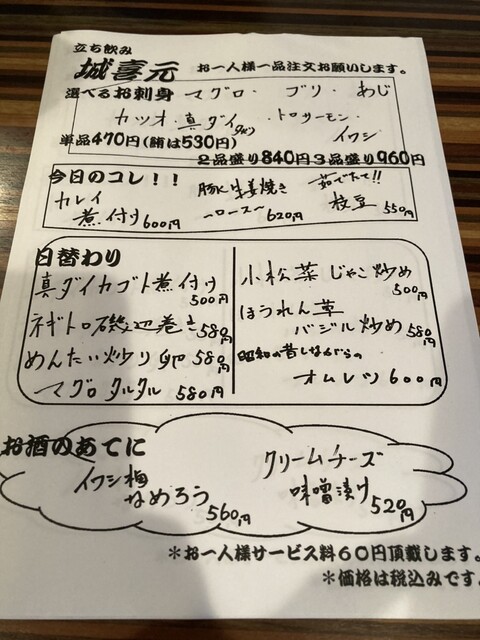 立ち飲み
城喜元 お一人様一品注文お願いします。
選べるお刺身 マグロ・ブリ・あじ
カツオ・真ダイ・トロサーモン・
イワシ
単品470円(鮪は530円)
2品盛り840円3品盛り960円
今日のコレ!!
カレイ
煮付け600円
豚ヒ生姜焼き
~ロース~ 620円
茹でたて!!
枝豆 550円
日替わり
真ダイカブト煮付け
500円
ネギトロ磯辺巻き580円
めんたい炒り卵580円
マグロタルタル 580円
小松菜じゃこ炒め
500円
ほうれん草
バジル炒め580円
昭和の昔しながらの
オムレツ600円
お酒のあてに
イワシ梅
なめろう560円
クリームチーズ
味噌漬け520円
*お一人様サービス料60円頂戴します。
*価格は税込みです。